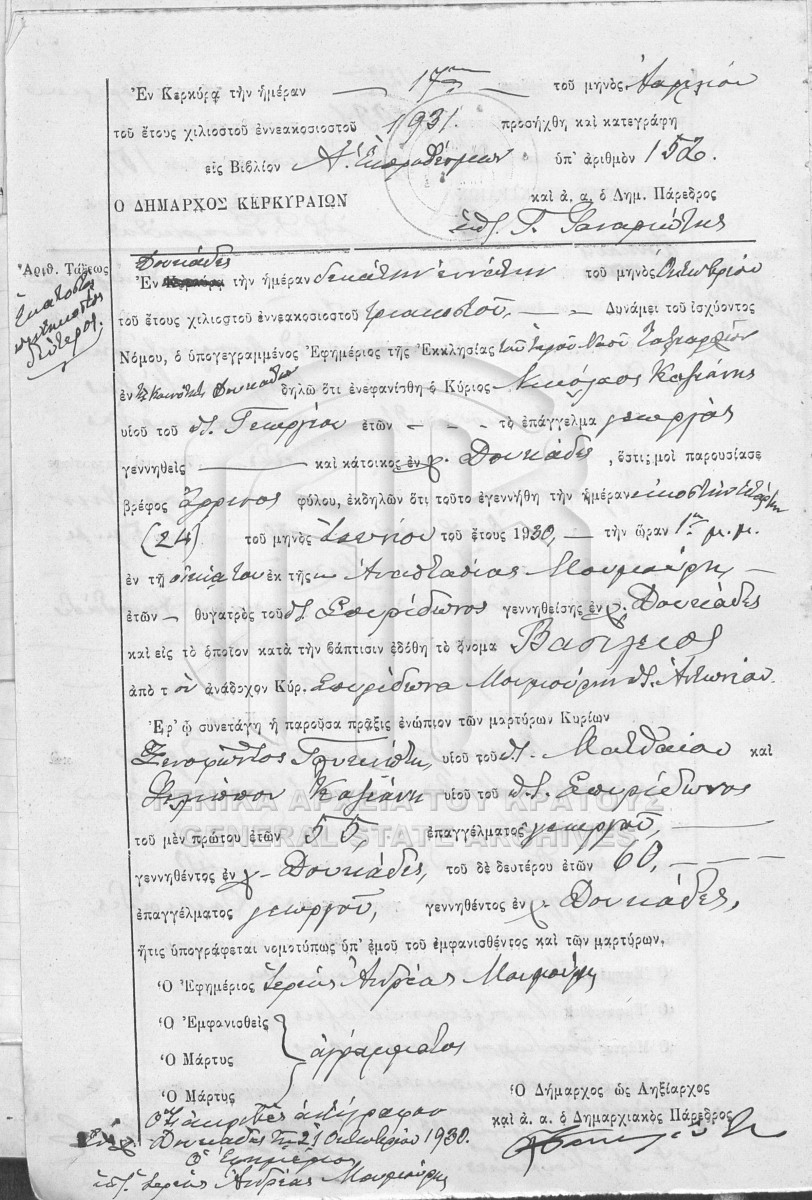 Ἐν Κερκύρᾳ τὴν ἡμέραν 17ην τοῦ μηνὸς Ἀπριλίου
τοῦ ἔτους χιλιοστοῦ ἐννεακοσιοστοῦ 1931. προσήχθη καὶ κατεγράφη
εἰς Βιβλίον Α. Ἐκπροθέσμων ὑπ' ἀριθμὸν 152.
Ο ΔΗΜΑΡΧΟΣ ΚΕΡΚΥΡΑΙΩΝ καὶ ἀ. α. ὁ Δημ. Πάρεδρος
Ἀριθ. Τάξεως
Ἑκατοστὸς
πεντηκοστὸς
δεύτερος.
Δουκάδες
Ἐν Κερκύρᾳ τὴν ἡμέραν δεκάτην ἐννάτην τοῦ μηνὸς Ὀκτωβρίου
τοῦ ἔτους χιλιοστοῦ ἐννεακοσιοστοῦ τριακοστοῦ, Δυνάμει τοῦ ἰσχύοντος
Νόμου, ὁ ὑπογεγραμμένος Ἐφημέριος τῆς Ἐκκλησίας τοῦ Ἱεροῦ Ναοῦ Ταξιαρχῶν
ἐν τῇ Κοινότητι Δουκάδων δηλῶ ὅτι ἐνεφανίσθη ὁ Κύριος Νικόλαος Κασιάνης
υἱοῦ τοῦ π. Γεωργίου ἐτῶν — τὸ ἐπάγγελμα γεωργὸς
γεννηθεὶς — καὶ κάτοικος ἐν χ. Δουκάδες, ὅστις μοὶ παρουσίασε
βρέφος ἄρρενος φύλου, ἐκδηλῶν ὅτι τοῦτο ἐγεννήθη τὴν ἡμέραν εἰκοστὴν τετάρτην
(24) τοῦ μηνὸς Ἰουνίου τοῦ ἔτους 1930, — τὴν ὥραν 1ην μ.μ.
ἐν τῇ οἰκίᾳ του ἐκ τῆς Ἀναστασίας Μουμούρη —
ἐτῶν — θυγατρὸς τοῦ π. Σπυρίδωνος γεννηθείσης ἐν χ. Δουκάδες
καὶ εἰς τὸ ὁποῖον κατὰ τὴν βάπτισιν ἐδόθη τὸ ὄνομα Βασίλειος
ἀπὸ τὸν ἀνάδοχον Κύρ. Σπυρίδωνα Μουμούρην π. Ἀντωνίου.
Ἐφ' ᾧ συνετάγη ἡ παροῦσα πρᾶξις ἐνώπιον τῶν μαρτύρων Κυρίων
Ξενοφῶντος υἱοῦ τοῦ π. Ματθαίου καὶ
Φιλίππου Κασιάνη υἱοῦ τοῦ π. Σπυρίδωνος
ΓΕΝΙΚΑ ΑΡΧΕΙΑ ΤΟΥ ΚΡΑΤΟΥΣ
GENERAL STATE ARCHIVES
τοῦ μὲν πρώτου ἐτῶν 55, ἐπαγγέλματος γεωργοῦ, —
γεννηθέντος ἐν χ. Δουκάδες, τοῦ δὲ δευτέρου ἐτῶν 60, —
ἐπαγγέλματος γεωργοῦ, γεννηθέντος ἐν χ. Δουκάδες,
ἥτις ὑπογράφεται νομοτύπως ὑπ' ἐμοῦ τοῦ ἐμφανισθέντος καὶ τῶν μαρτύρων.
Ὁ Ἐφημέριος Ἱερεὺς Ἀνδρέας Μουμούρης
Ὁ Ἐμφανισθεὶς
Ὁ Μάρτυς ἀγράμματος
Ὁ Μάρτυς
Ὁ Δήμαρχος ὡς Ληξίαρχος
καὶ ἀ. α. ὁ Δημαρχιακὸς Πάρεδρος
ἀκριβὲς ἀντίγραφον
Ἐν χ. Δουκάδες τῇ 21 Ὀκτωβρίου 1930.
Ὁ Ἐφημέριος
Ἱερεὺς Ἀνδρέας Μουμούρης